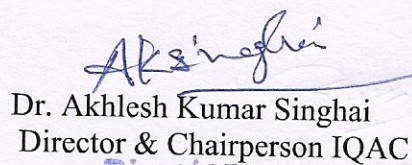 AKSinghai
Dr. Akhlesh Kumar Singhai
Director & Chairperson IQAC